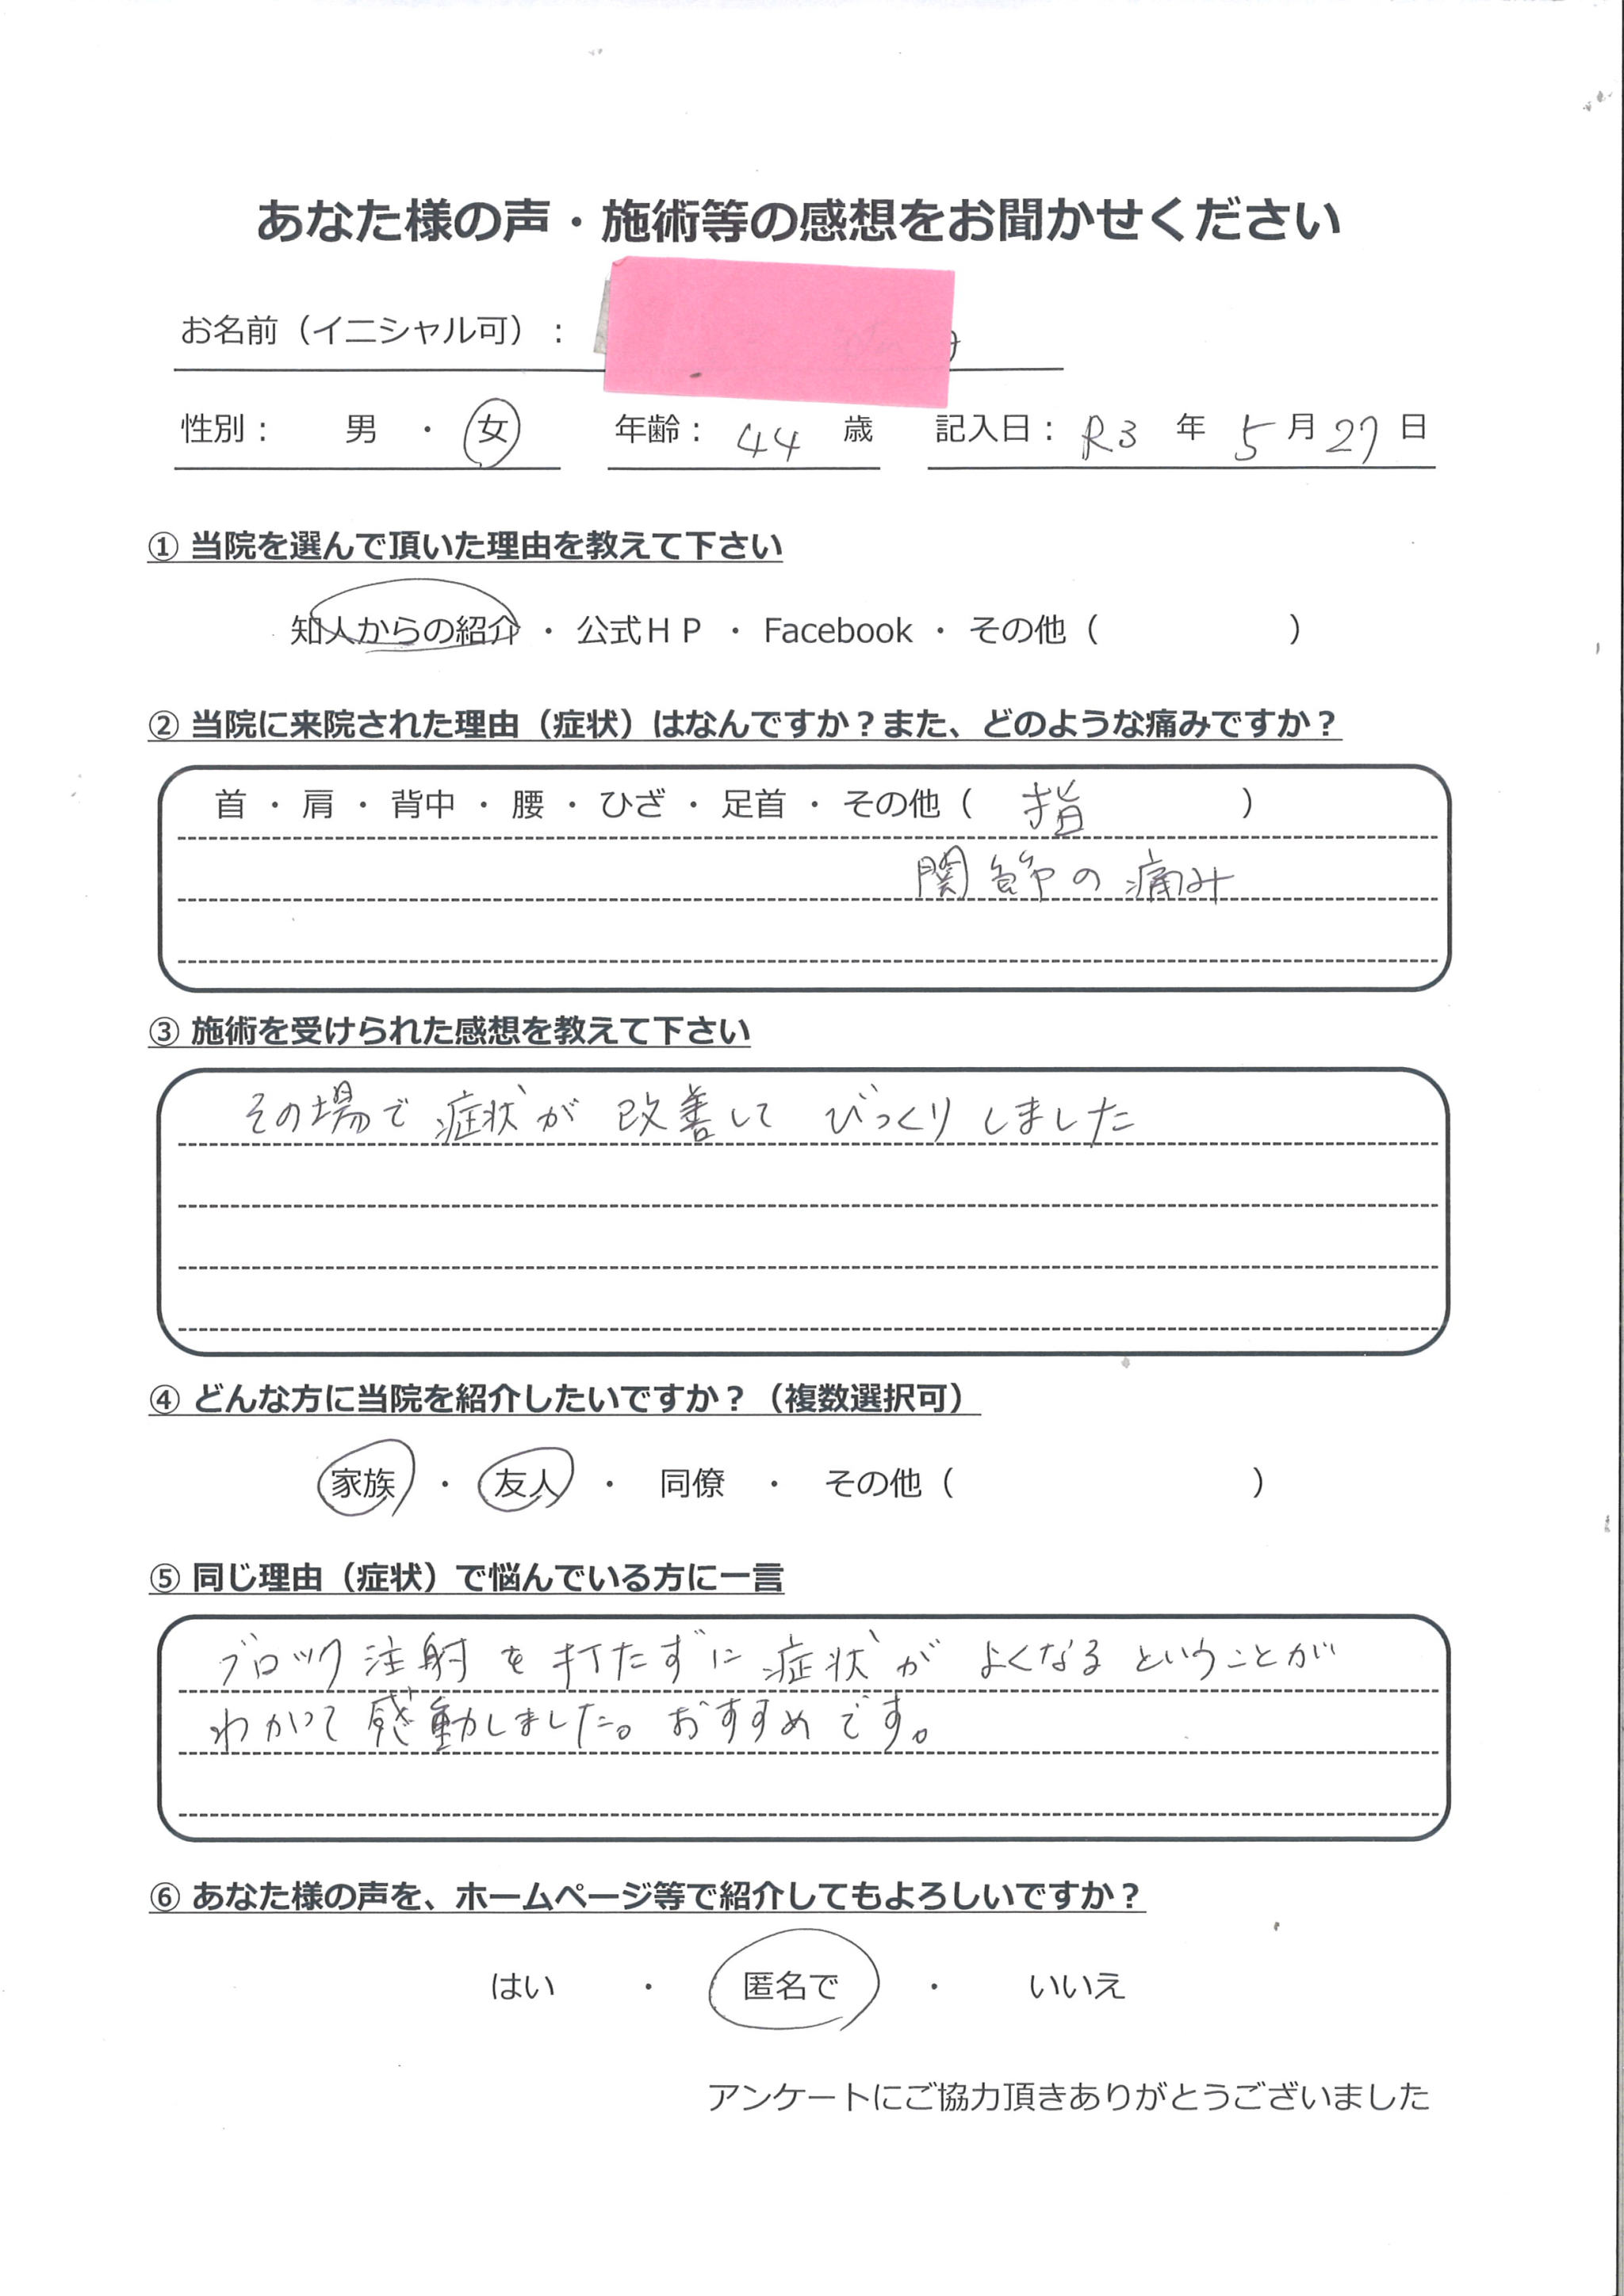 あなた様の声・施術等の感想をお聞かせください
お名前（イニシャル可）：
性別： 男 ・ 女 年齢： 44 歳 記入日： R3 年 5 月 27 日
① 当院を選んで頂いた理由を教えて下さい
知人からの紹介 ・ 公式ＨＰ ・ Facebook ・ その他（ ）
② 当院に来院された理由（症状）はなんですか？また、どのような痛みですか？
首 ・ 肩 ・ 背中 ・ 腰 ・ ひざ ・ 足首 ・ その他（ 指 ）
関節の痛み
③ 施術を受けられた感想を教えて下さい
その場で症状が改善してびっくりしました
④ どんな方に当院を紹介したいですか？（複数選択可）
家族 ・ 友人 ・ 同僚 ・ その他（ ）
⑤ 同じ理由（症状）で悩んでいる方に一言
ブロック注射を打たずに症状がよくなるということが
わかって感動しました。おすすめです。
⑥ あなた様の声を、ホームページ等で紹介してもよろしいですか？
はい ・ 匿名で ・ いいえ
アンケートにご協力頂きありがとうございました